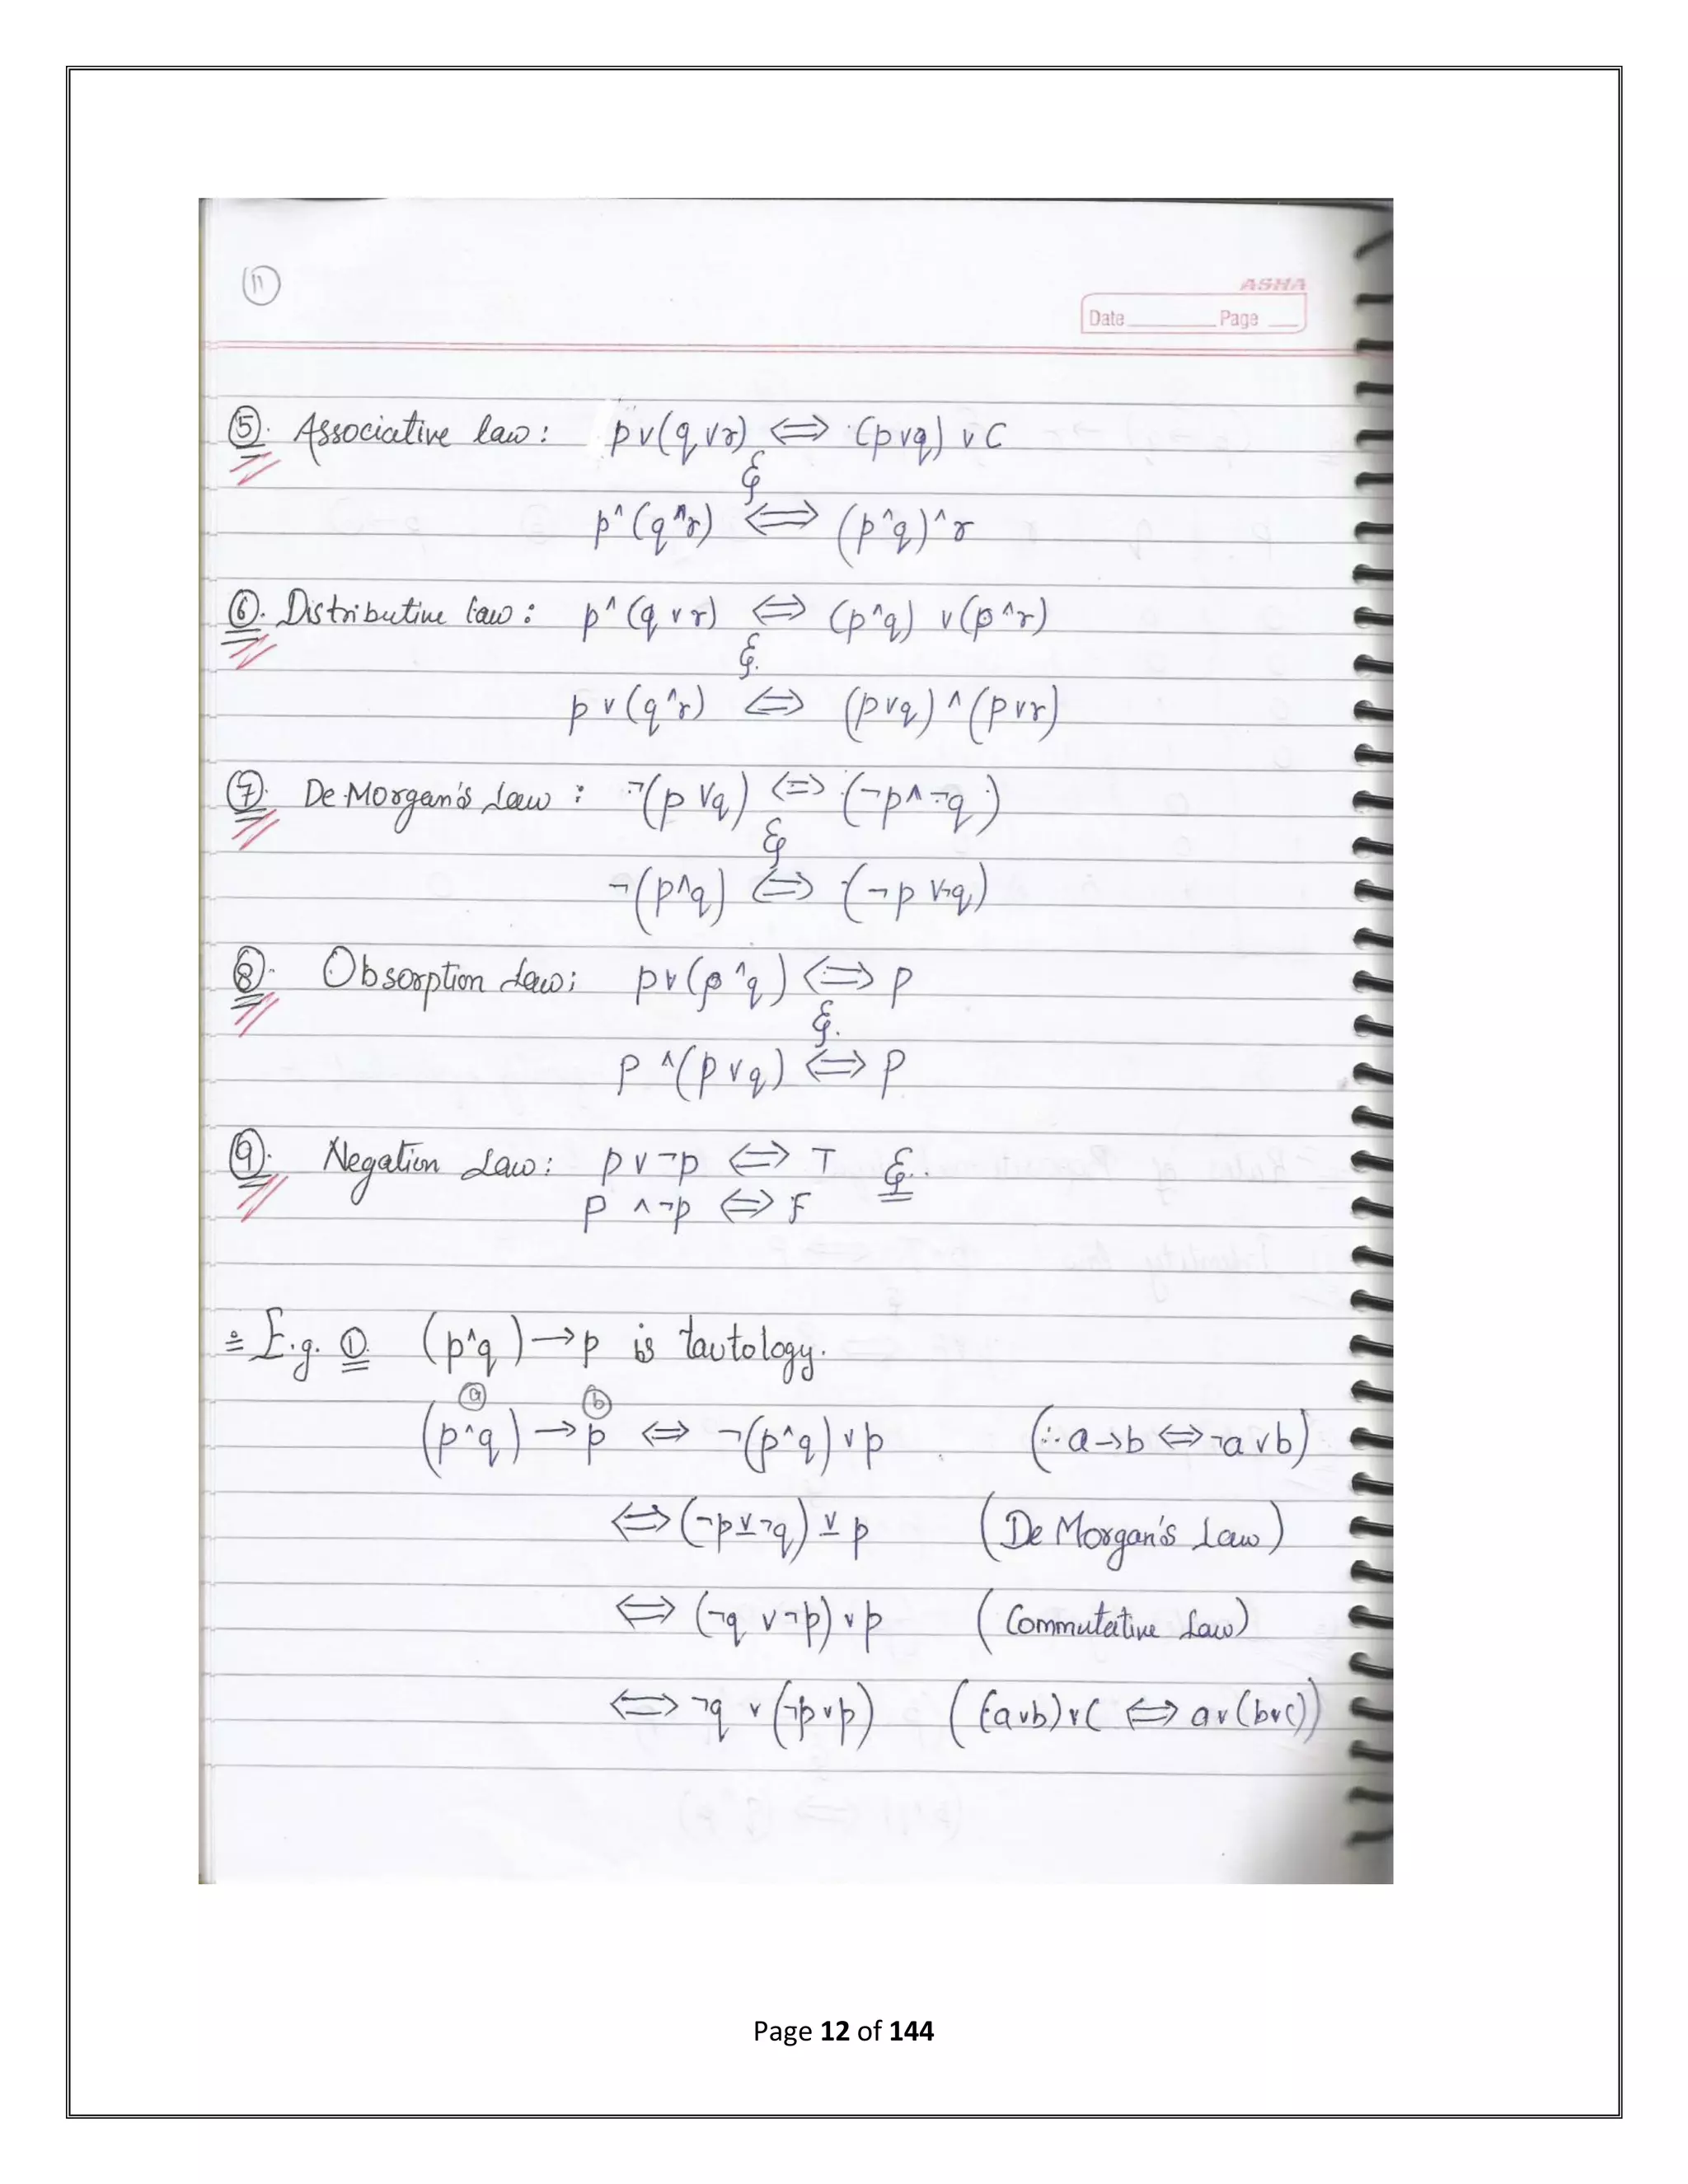 11
ASHA
Date Page
5. Associative law: p∨(q∨r) ⇔ (p∨q)∨C
&
p^(q^r) ⇔ (p^q)^r
6. Distributive law: p^(q∨r) ⇔ (p^q) ∨(p^r)
&.
p∨(q^r) ⇔ (p∨q)^(p∨r)
7. De-Morgan's Law: ¬(p∨q) ⇔ (¬p^¬q)
&
¬(p^q) ⇔ (¬p∨¬q)
8. Obsorption Law: p∨(p^q) ⇔ p
&.
p^(p∨q) ⇔ p
9. Negation Law: p∨¬p ⇔ T &.
p^¬p ⇔ F
E.g. 1. (p^q)→p is tautology.
a b
(p^q)→p ⇔ ¬(p^q)∨p (∴ a→b ⇔ ¬a∨b)
⇔ (¬p∨¬q)∨p (De Morgan's Law)
⇔ (¬q∨¬p)∨p (Commutative Law)
⇔ ¬q∨(¬p∨p) ((a∨b)∨C ⇔ a∨(b∨C))
Page 12 of 144